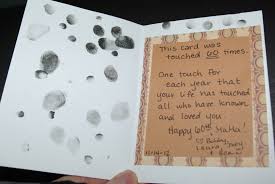 This card was
touched 60 times.
One touch for
each year that
your life has touched
all who have known
and loved you.
Happy 60th MaMa!
Laura